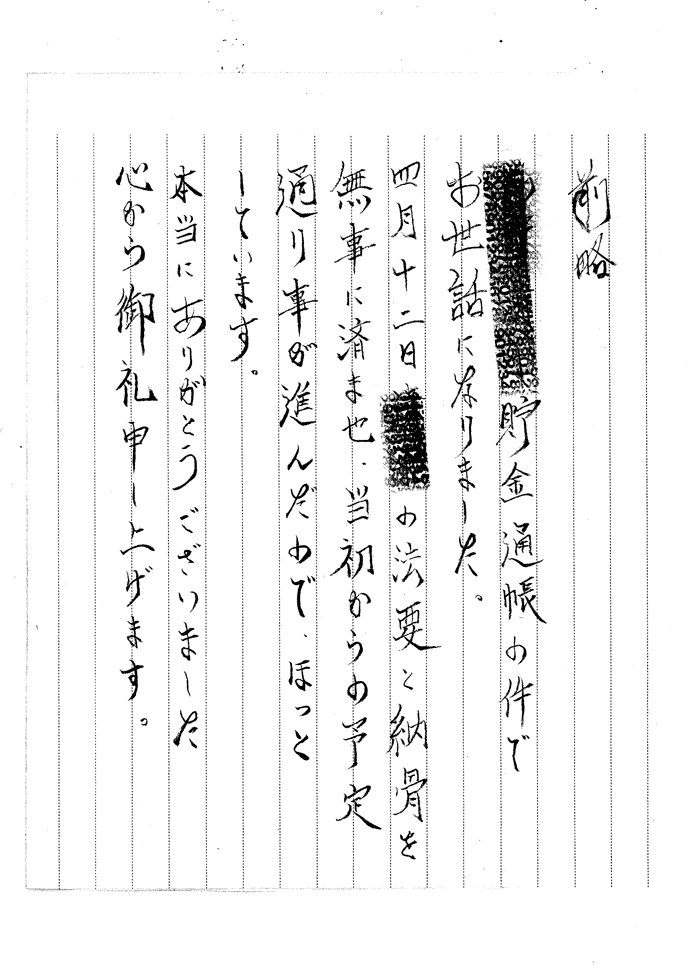 前略
貯金通帳の件で
お世話になりました。
四月十二日
の法要と納骨を
無事に済ませ、当初からの予定
通り事が進んだので、ほっと
しています。
本当にありがとうございました
心から御礼申し上げます。